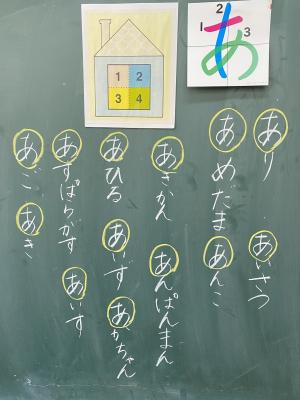 1 2
3 4
あ
1
2
3
あり
あいさつ
あめだま
あんこ
あきかん
あんぱんまん
あひる
あいず
あかちゃん
あすぱらがす
あいす
あご
あき